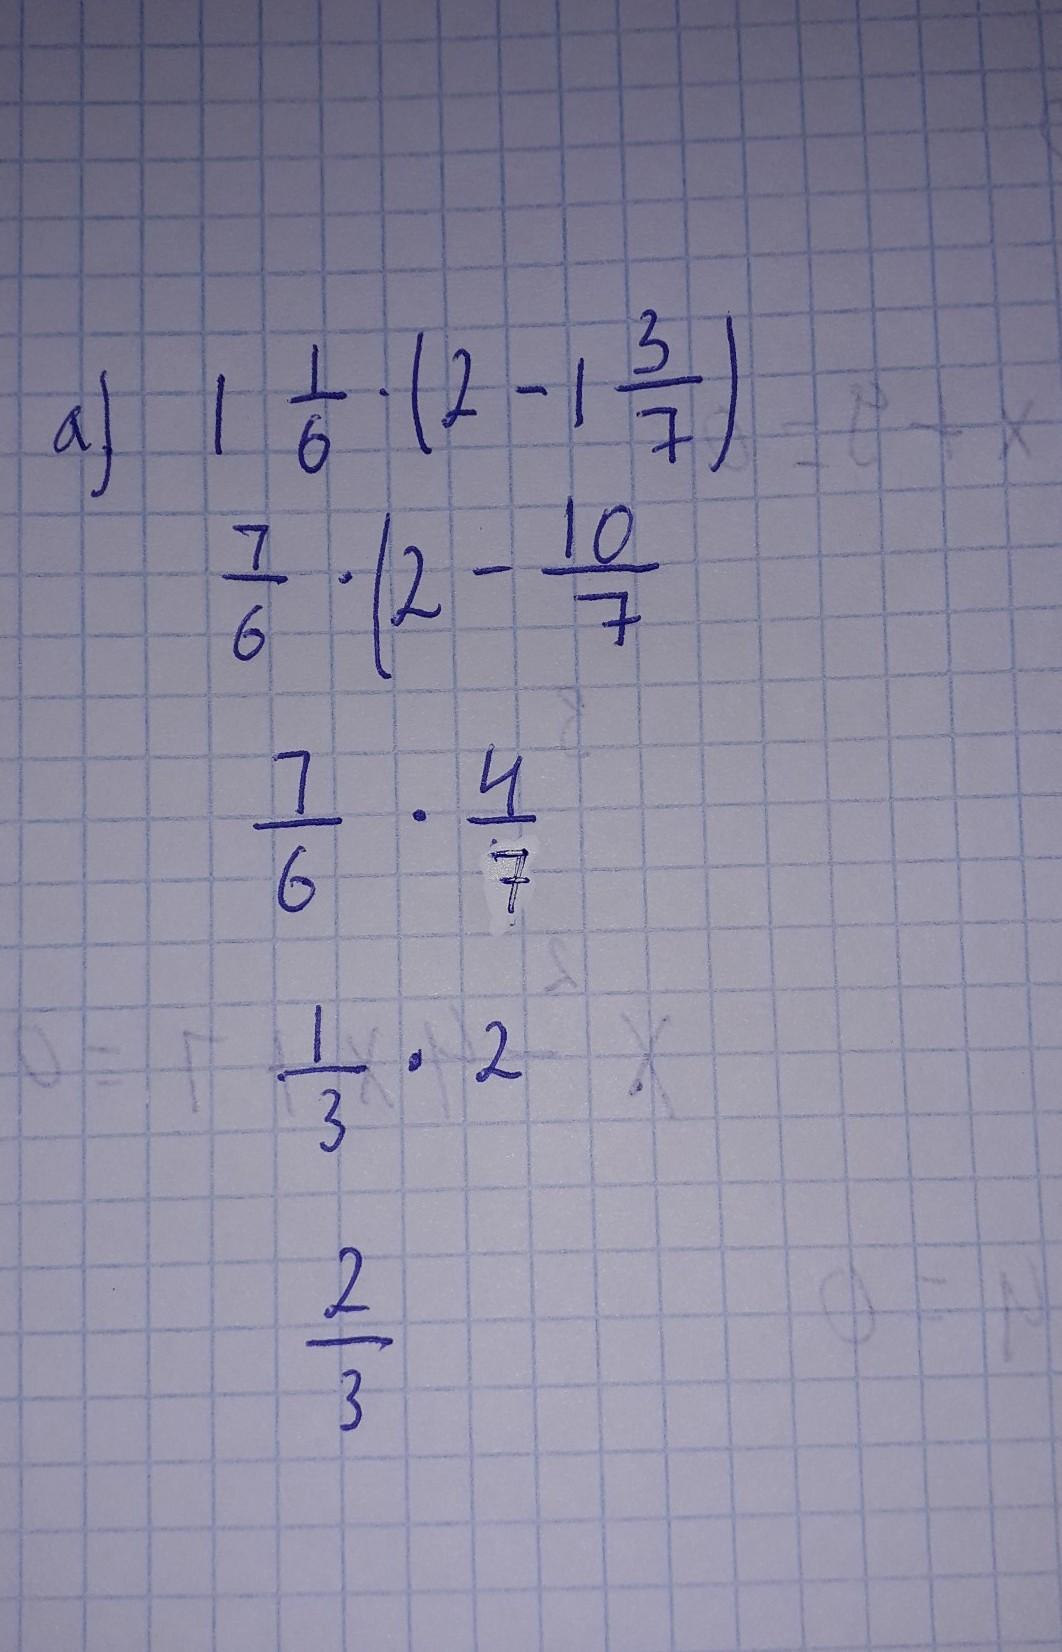 a) 1 1/6 · (2 - 1 3/7)
7/6 · (2 - 10/7
7/6 · 4/7
1/3 · 2
2/3